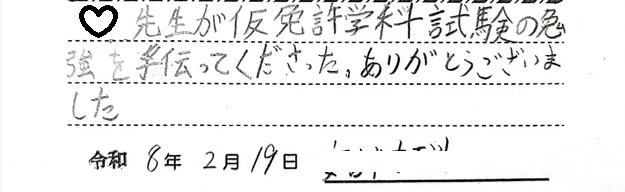 ♡ 先生が仮免許学科試験の勉
強を手伝ってくださった。ありがとうございま
した
令和 8年 2月 19日